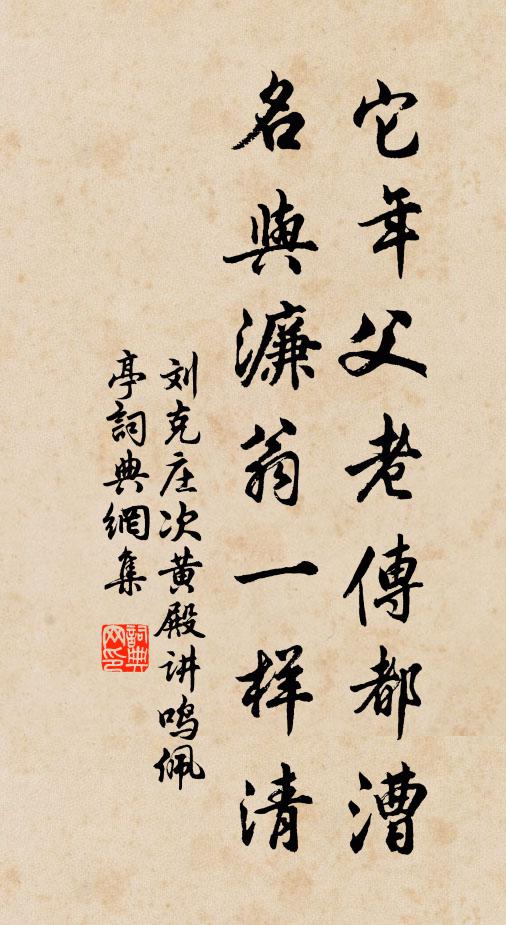 它年父老傳都漕
名與濂翁一样清
刘克庄次黄殿讲鸣佩
亭詞典網集
詞典
网印